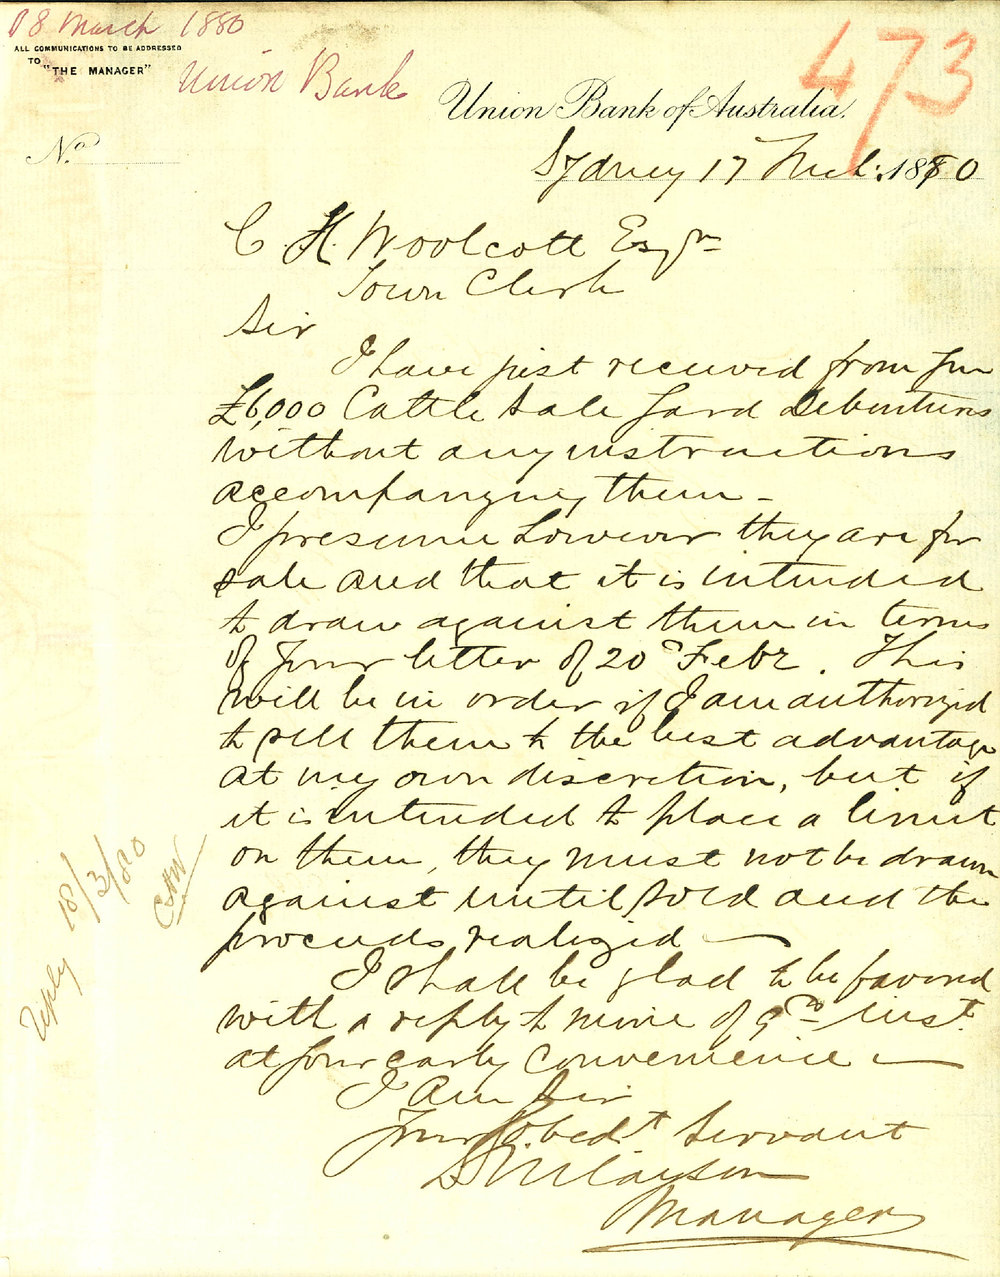 18 March 1880
ALL COMMUNICATIONS TO BE ADDRESSED
TO "THE MANAGER"
Union Bank
473
Union Bank of Australia.
No.
Sydney 17 Mch: 1880
C. H. Woolcott Esqr
Town Clerk
Sir
I have just received from you
£6,000 Cattle Sale Yard Debentures
without any instructions
accompanying them -
I presume however they are for
sale and that it is intended
to draw against them in terms
of your letter of 20th Feby. This
will be in order if I am authorized
to sell them to the best advantage
at my own discretion, but if
it is intended to place a limit
on them, they must not be drawn
against until sold and the
proceeds realized —
I shall be glad to be favored
with a reply to mine of 9th inst.
at your early convenience —
I am Sir
Your Obedt Servant
Manager
Reply 18/3/80
CHW